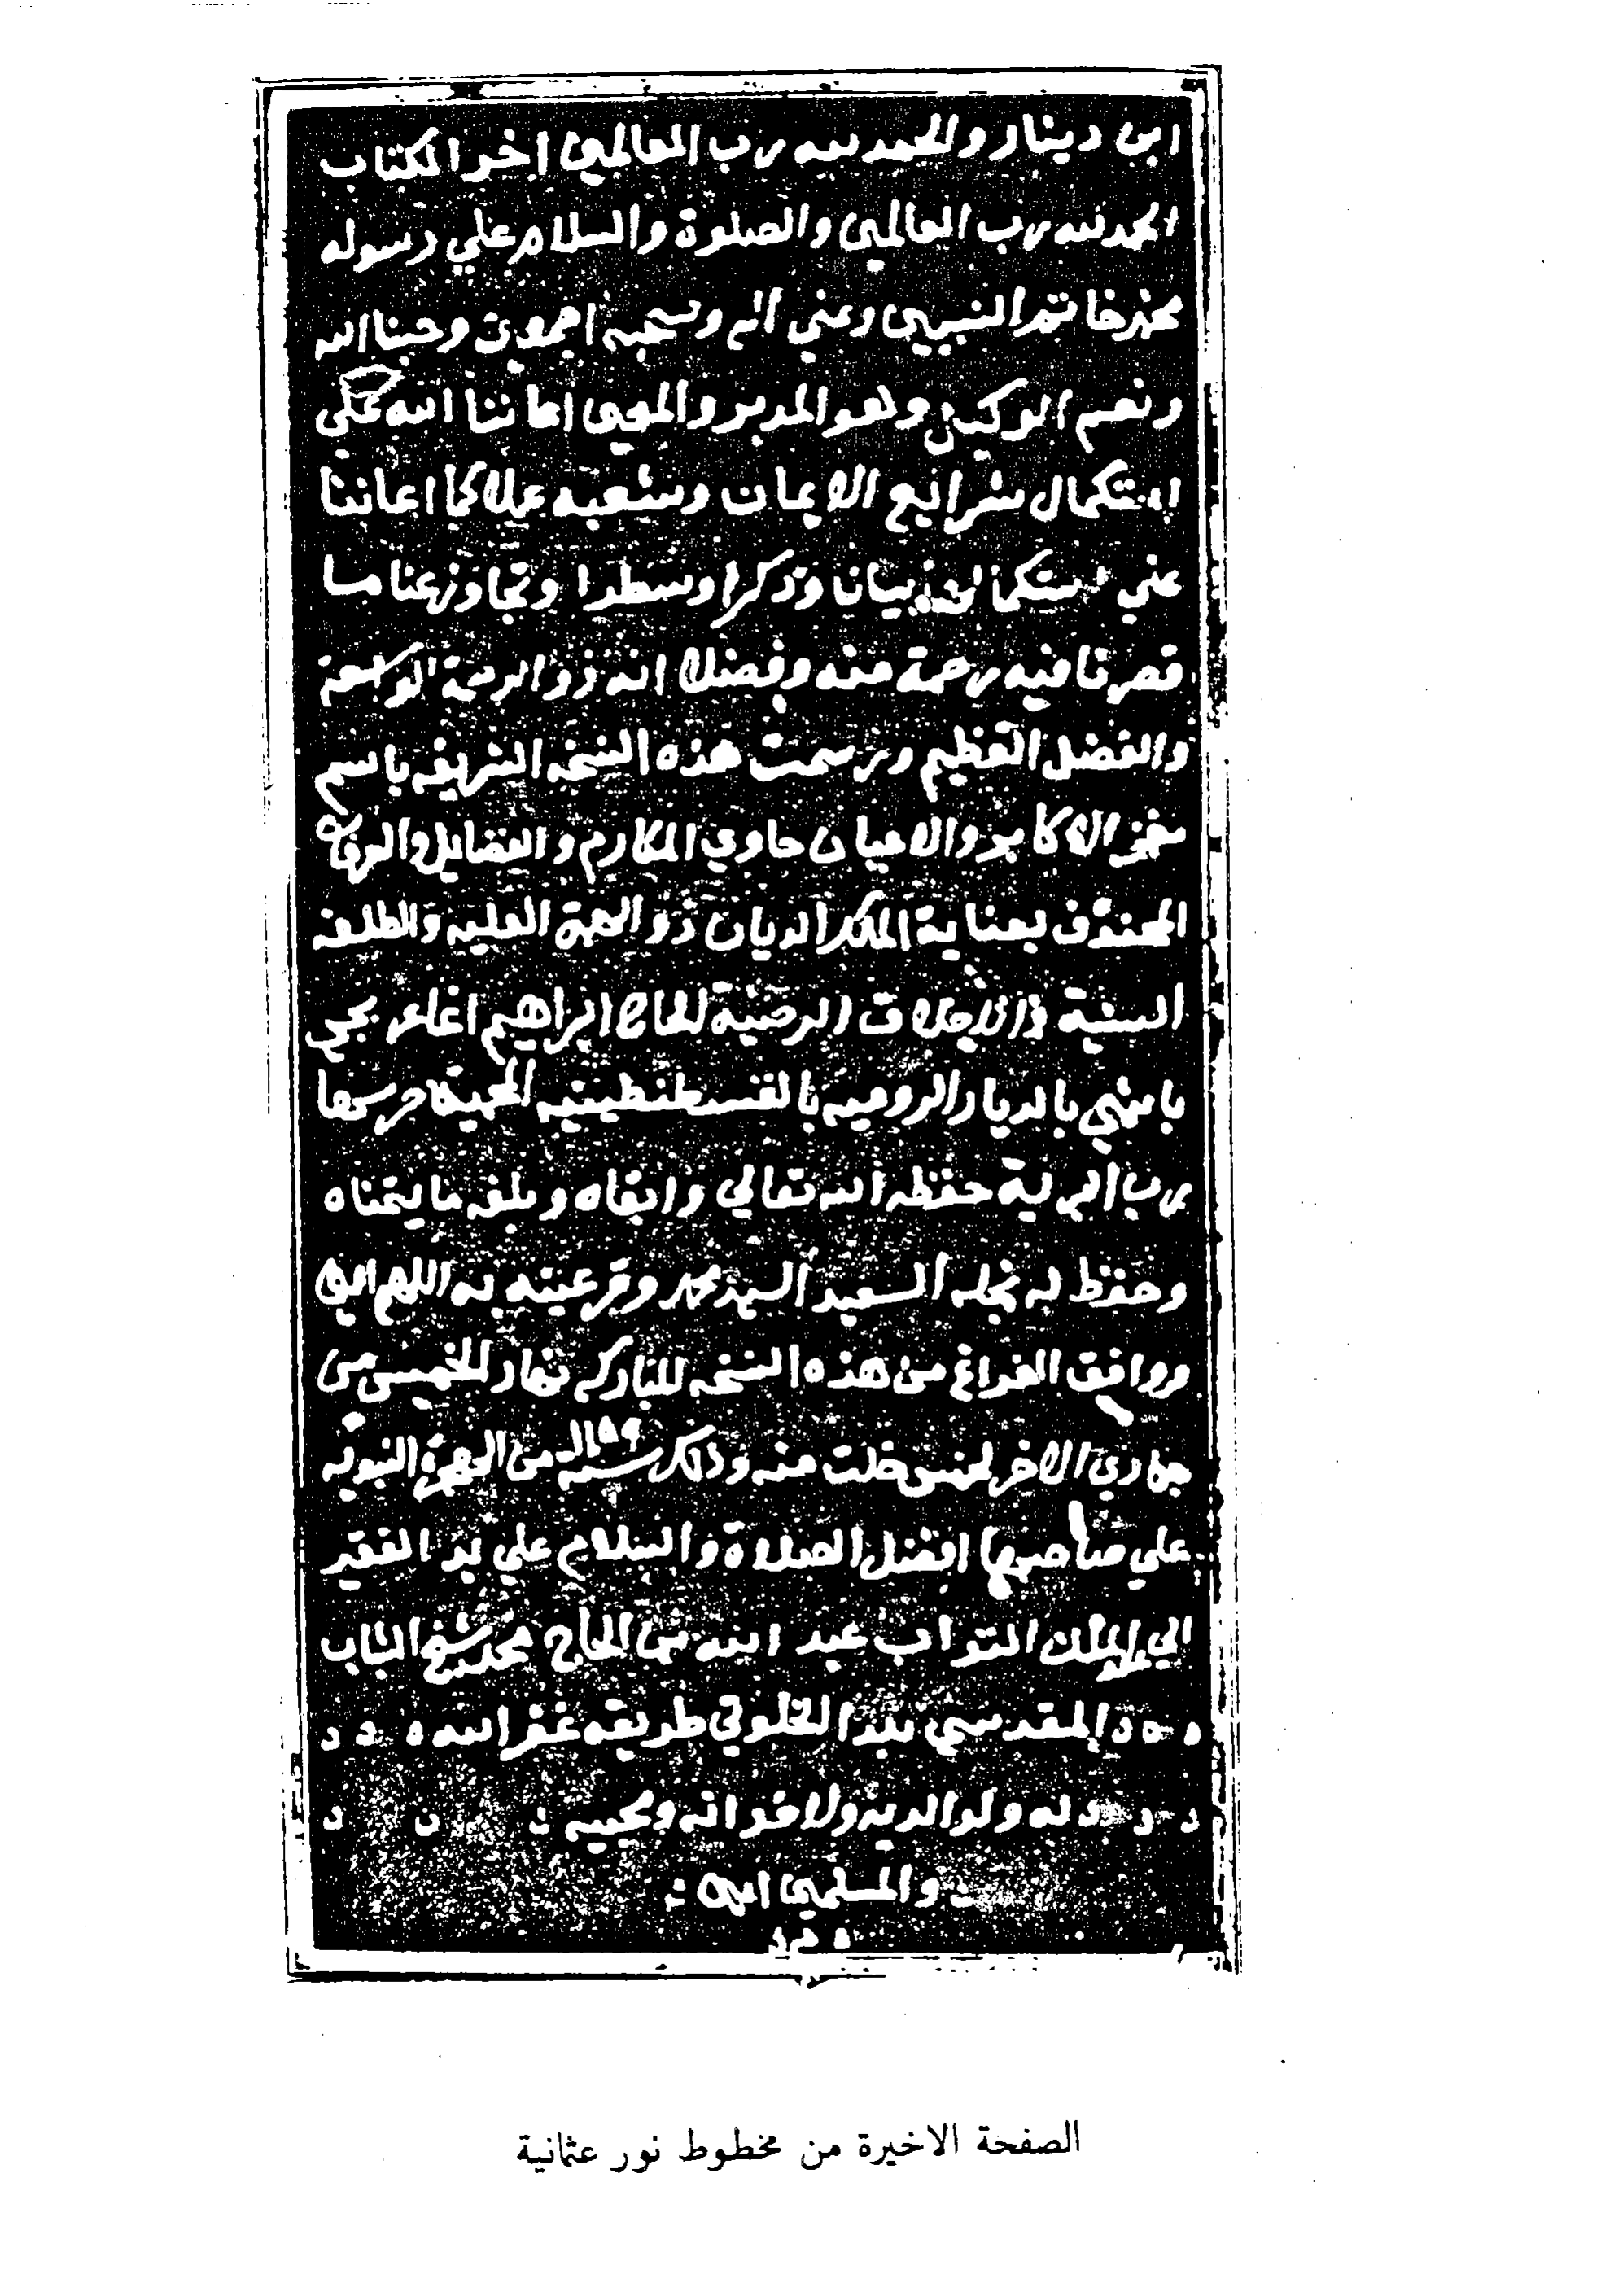 ابن دينار والحمد لله رب العالمين اخر الكتاب
الحمد لله رب العالمين والصلوة والسلام علي رسوله
محمد خاتم النبيين وعلي اله وصحبه اجمعين وحسبنا الله
ونعم الوكيل وهو المدبر والمعين اعاننا الله علي
استكمال شرايع الايمان وشعبه عملا كما اعاننا
علي استكمالها بيانا وذكرا وسطرا وتجاوز عنا ما
قصرنا فيه رحمة منه وفضلا انه ذو الرحمة الواسعة
والفضل العظيم ورسمت هذه النسخه الشريفه باسم
فخر الاكابر والاعيان حاوي المكارم والفضايل والعرفان
المحفوف بعناية الملك الديان ذو الهمة العليه والطلعه
السنية والاخلاق الرضية الحاج ابراهيم اغا
بالديار الروميه بالقسطنطينيه المحمية حرسها
رب البرية حفظه الله تعالي وابقاه وبلغه ما يتمناه
وحفظ له نجله السعيد السيد محمد وقر عينه به اللهم امين
ووافق الفراغ من هذه النسخه المباركه نهار الخميس من
جمادي الاخر لخمس خلت منه وذلك سنة من الهجرة النبويه
علي صاحبها افضل الصلاة والسلام علي يد الفقير
الي الملك التواب عبد الله بن الحاج محمد شيخ الشباب
المقدسي بلدا الخلوتي طريقه غفر الله
له ولوالديه ولاخوانه ومحبيه
والمسلمين امين
الصفحة الاخيرة من مخطوط نور عثمانية